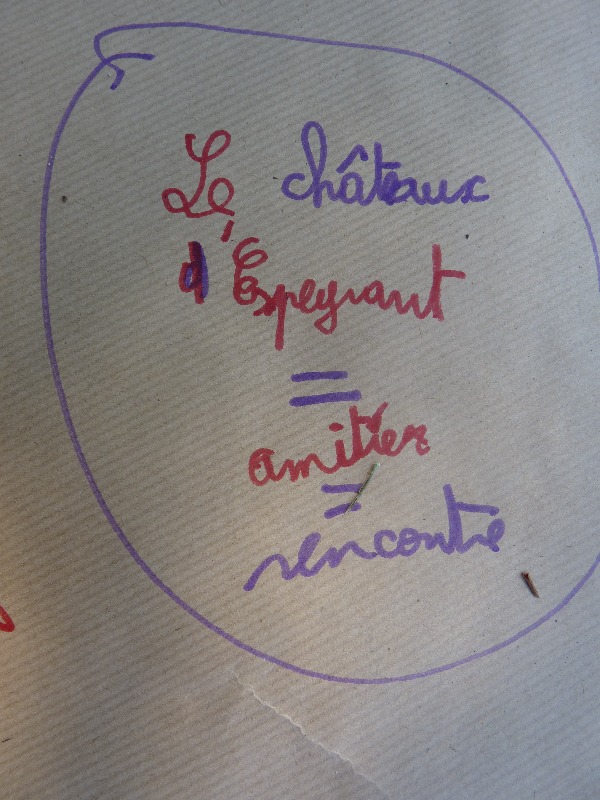 Le châteaux
d'Espeyrant
=
amitiér
=
rencontre